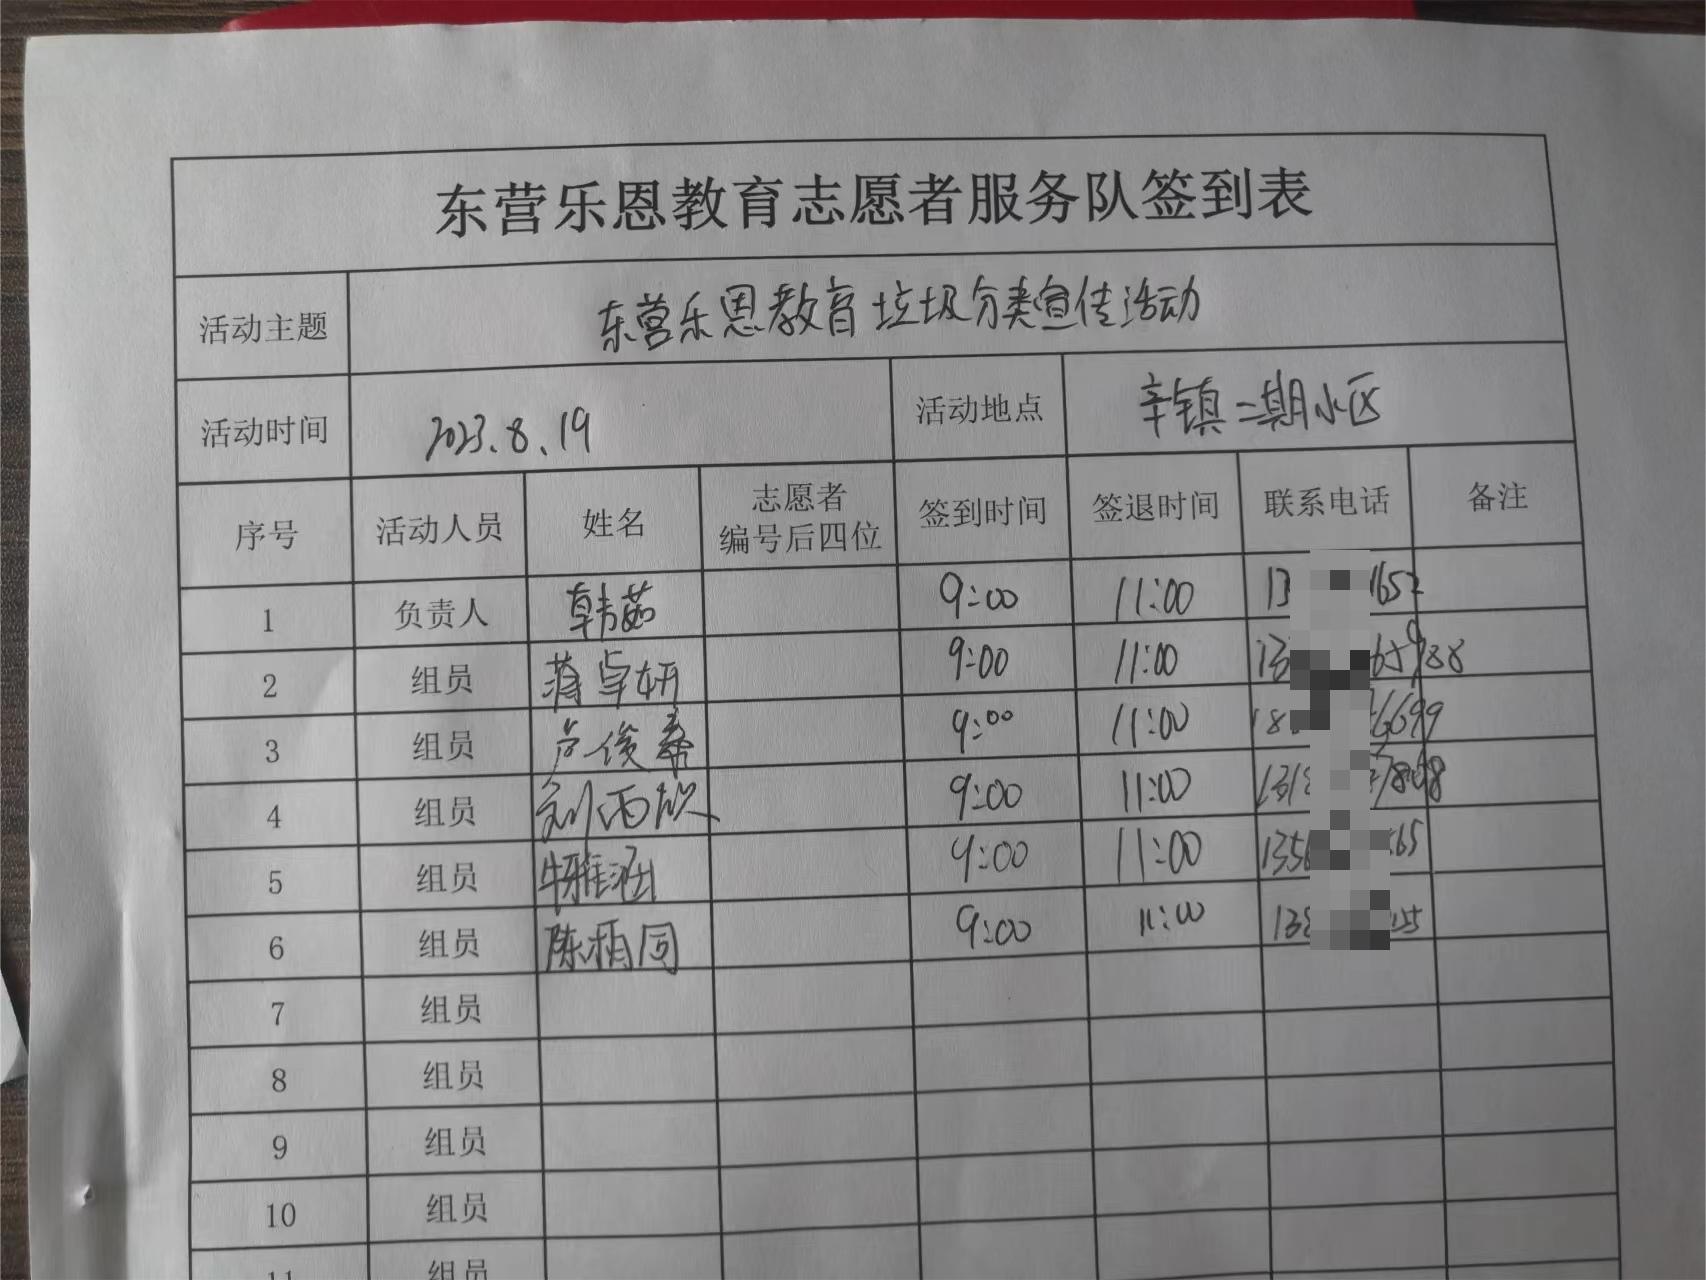 东营乐恩教育志愿者服务队签到表
活动主题 东营乐恩教育垃圾分类宣传活动
活动时间 2023.8.19 活动地点 辛镇二期小区
序号 活动人员 姓名 志愿者编号后四位 签到时间 签退时间 联系电话 备注
1 负责人 韩茹 9:00 11:00
2 组员 蒋卓妍 9:00 11:00
3 组员 9:00 11:00
4 组员 刘雨欣 9:00 11:00
5 组员 牛雅涵 9:00 11:00
6 组员 9:00 11:00
7 组员
8 组员
9 组员
10 组员
11 组员